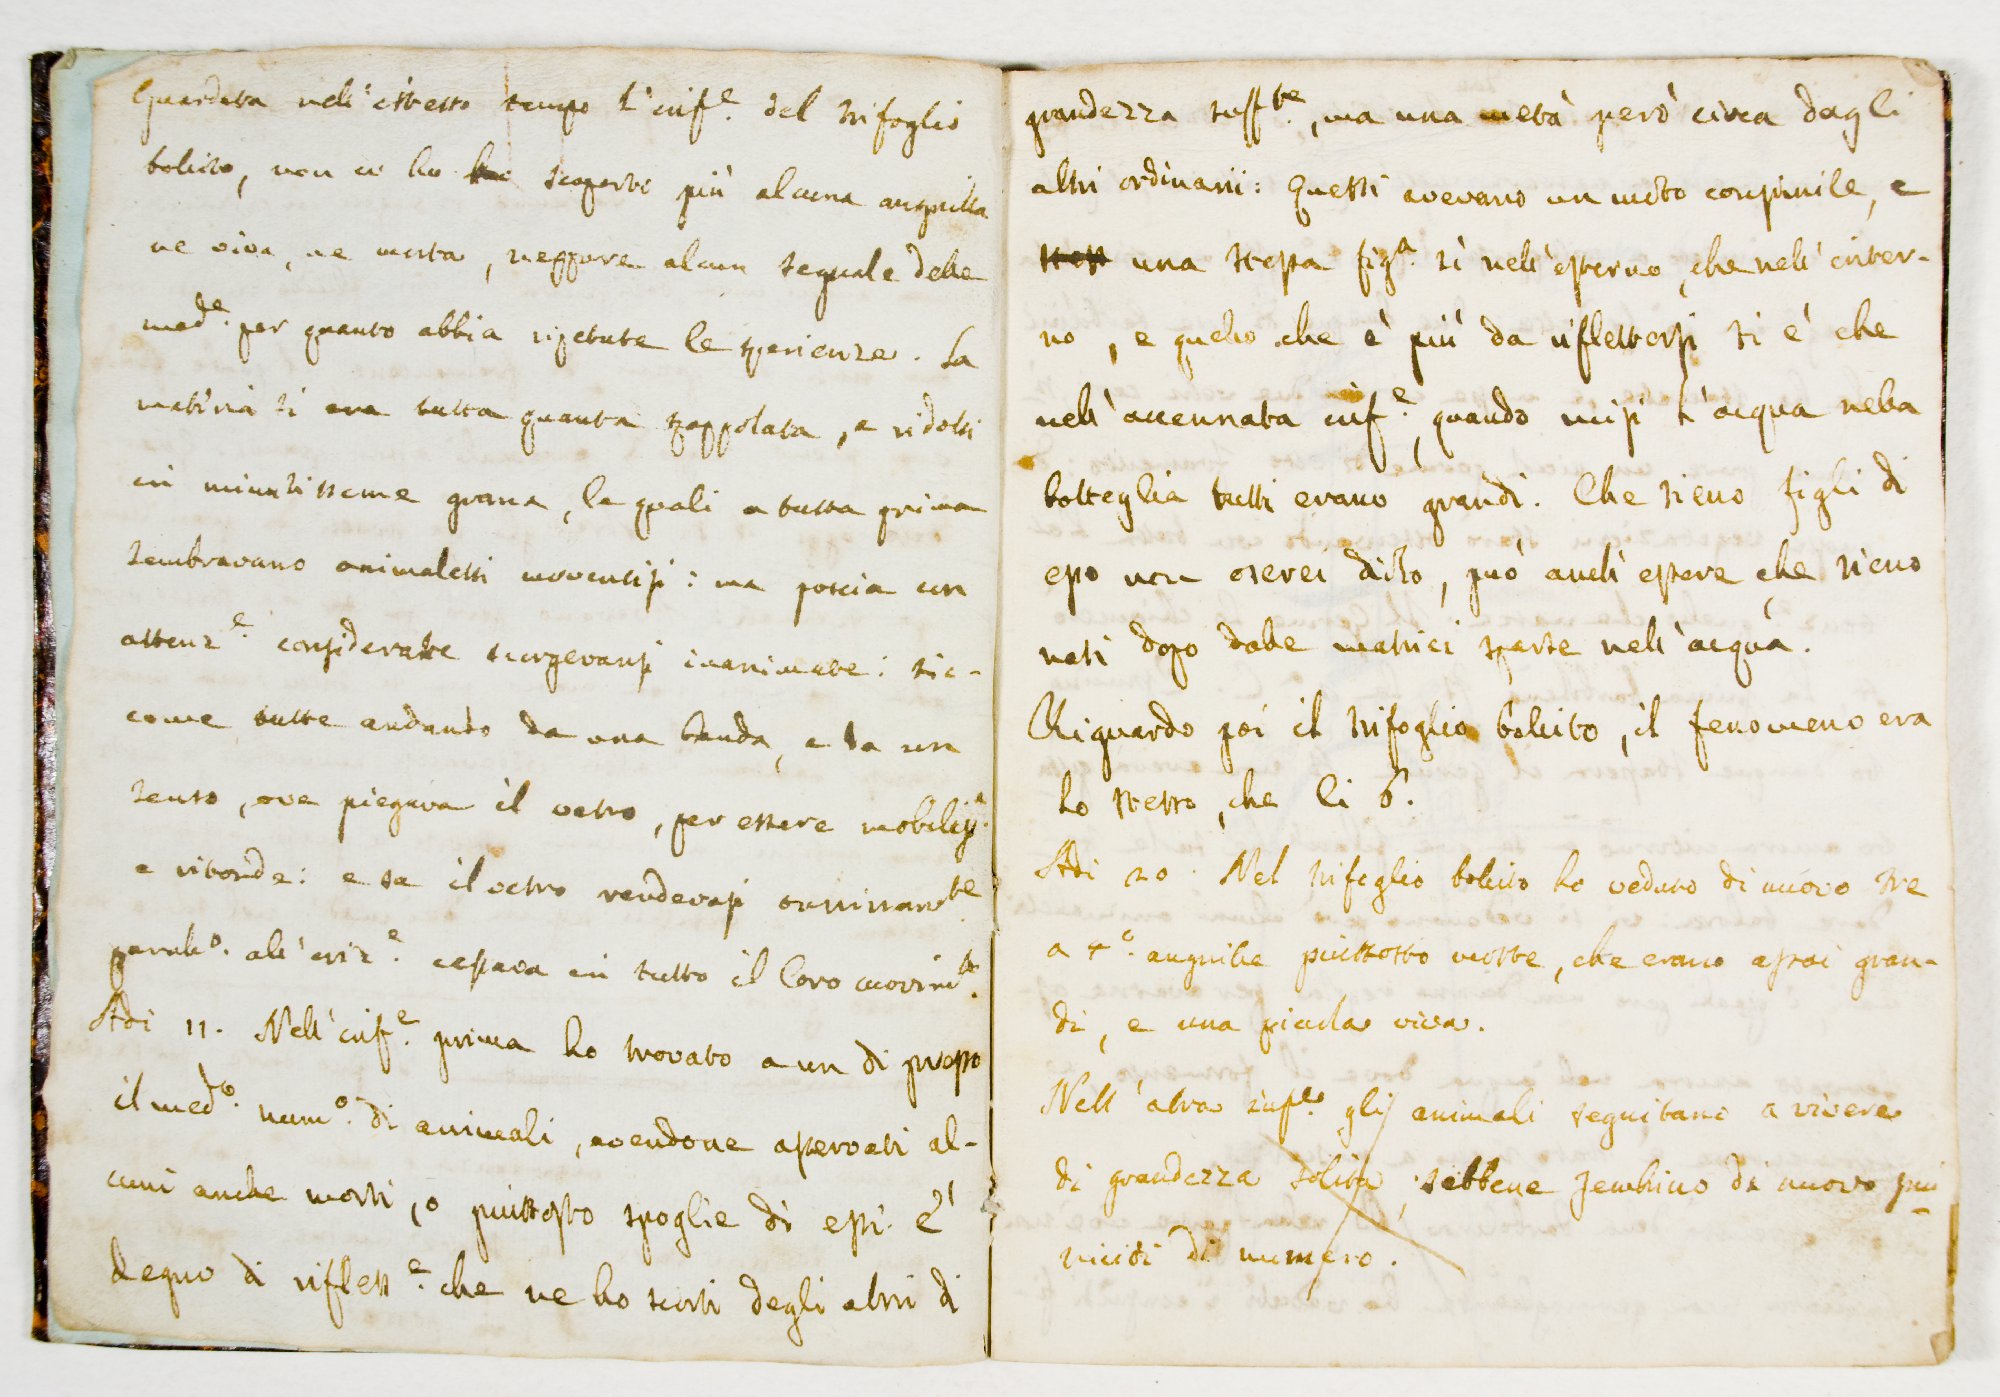 Guardata nell'istesso tempo l'inf.e del trifoglio
bollito, non ci ho scoperte più alcuna anguilla
ne viva, ne morta, neppure alcun segnale delle
med.e per quanto abbia ripetute le sperienze. La
materia si era tutta quanta spappolata, e ridotta
in minutissime grana, le quali a tutta prima
sembravano animaletti moventisi: ma poscia con
attenz.e considerate scorgevansi inanimate: sic-
come tutte andando da una banda, e da un
senso, ove piegava il vetro, per essere mobiliss.e
e ritonde: e se il vetro rendevasi onninam.te
paralelo. all'oriz.e cessava in tutto il loro movim.to.
Adi 11. Nell'inf.e prima ho trovato a un di presso
il med.o num.o di animali, avendone osservati al-
cuni anche morti, o piuttosto spoglie di essi. E'
degno di rifless.e che ne ho scorti degli altri di
grandezza suff.te, ma una metà però circa dagli
altri ordinarii: Questi avevano un moto consimile, e
una stessa fig.a sì nell'esterno, che nell'inter-
no, e quello che è più da riflettersi si è che
nell'accennata inf.e, quando misi l'acqua nella
botteglia tutti erano grandi. Che sieno figli di
esso non oserei dirlo, può anch'essere che sieno
nati dopo dalle matrici sparse nell'acqua.
Riguardo poi il trifoglio bollito, il fenomeno era
lo stesso, che li 6.
Adi 20. Nel trifoglio bollito ho veduto di nuovo tre
a 4.o anguille piuttosto morte, che erano assai gran-
di, e una piccola viva.
Nell'altra inf.e gli animali seguitano a vivere
di grandezza solita, sebbene sembrino di nuovo più
di numero.